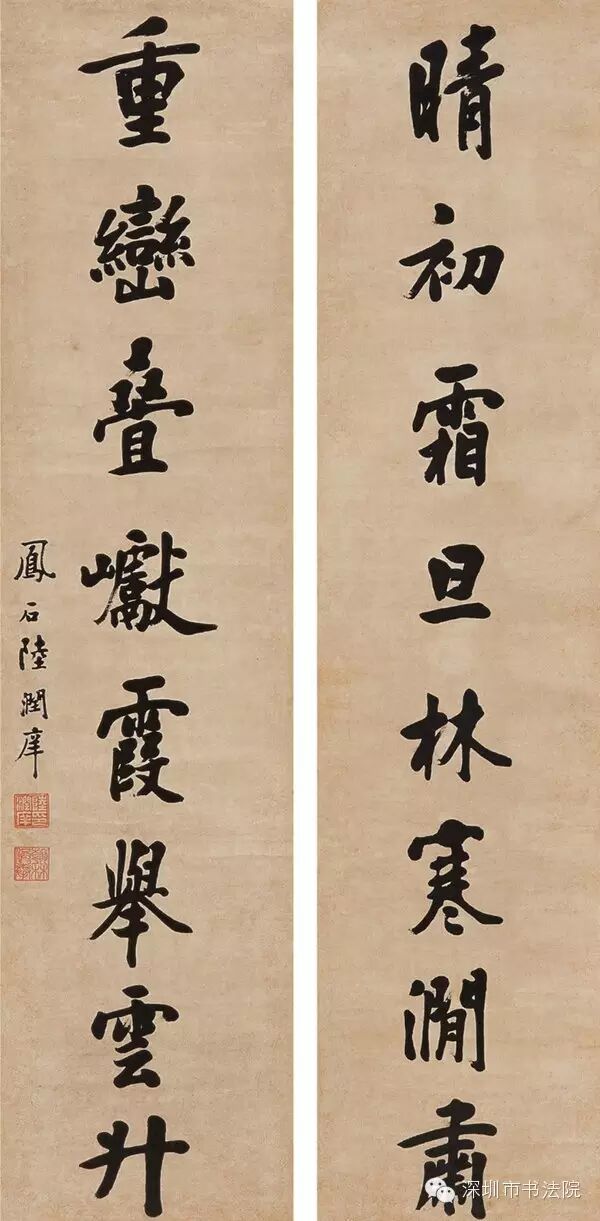 晴初霜旦林寒澗肅
重巒叠巘霞舉雲升
鳳石陸潤庠
深圳市书法院